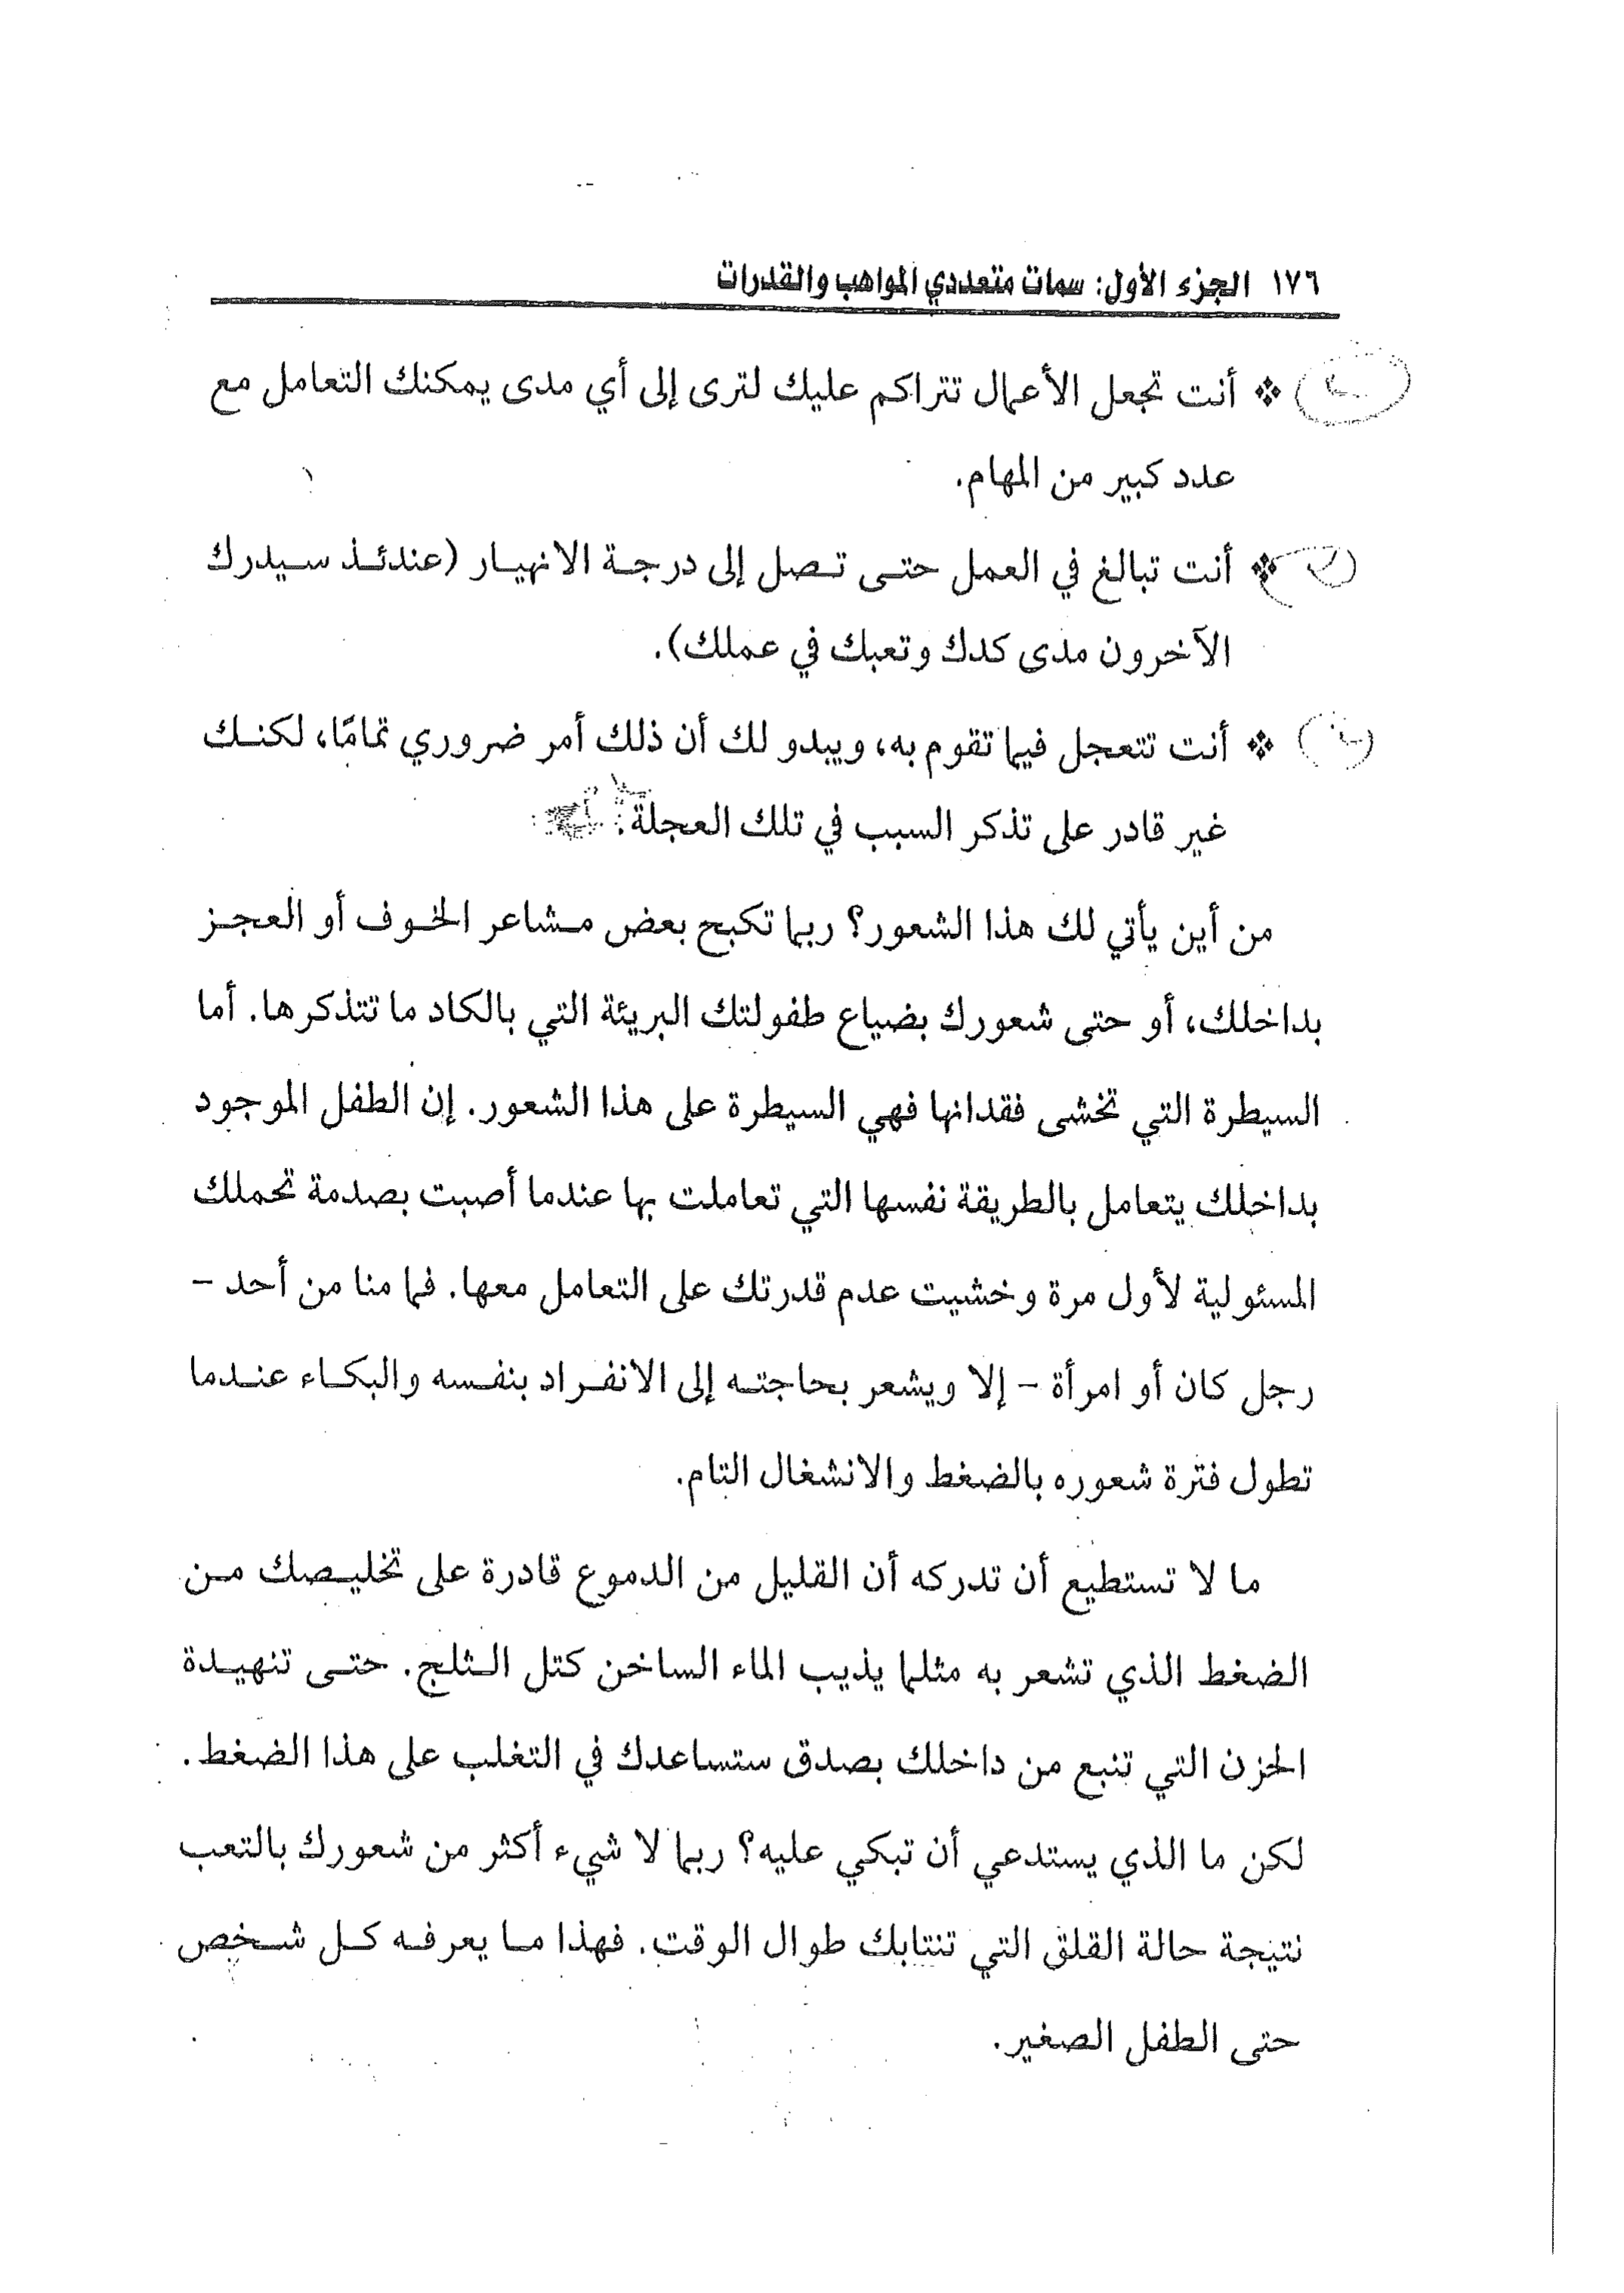 ١٧٦ الجزء الأول: سمات متعددي المواهب والقدرات
❖ أنت تجعل الأعمال تتراكم عليك لترى إلى أي مدى يمكنك التعامل مع
عدد كبير من المهام.
❖ أنت تبالغ في العمل حتى تصل إلى درجة الانهيار (عندئذ سيدرك
الآخرون مدى كدك وتعبك في عملك).
❖ أنت تتعجل فيما تقوم به، ويبدو لك أن ذلك أمر ضروري تمامًا، لكنك
غير قادر على تذكر السبب في تلك العجلة.
من أين يأتي لك هذا الشعور؟ ربما تكبح بعض مشاعر الخوف أو العجز
بداخلك، أو حتى شعورك بضياع طفولتك البريئة التي بالكاد ما تتذكرها. أما
السيطرة التي تخشى فقدانها فهي السيطرة على هذا الشعور. إن الطفل الموجود
بداخلك يتعامل بالطريقة نفسها التي تعاملت بها عندما أصبت بصدمة تحملك
المسئولية لأول مرة وخشيت عدم قدرتك على التعامل معها. فما منا من أحد -
رجل كان أو امرأة - إلا ويشعر بحاجته إلى الانفراد بنفسه والبكاء عندما
تطول فترة شعوره بالضغط والانشغال التام.
ما لا تستطيع أن تدركه أن القليل من الدموع قادرة على تخليصك من
الضغط الذي تشعر به مثلما يذيب الماء الساخن كتل الثلج. حتى تنهيدة
الحزن التي تنبع من داخلك بصدق ستساعدك في التغلب على هذا الضغط.
لكن ما الذي يستدعي أن تبكي عليه؟ ربما لا شيء أكثر من شعورك بالتعب
نتيجة حالة القلق التي تنتابك طوال الوقت. فهذا ما يعرفه كل شخص
حتى الطفل الصغير.